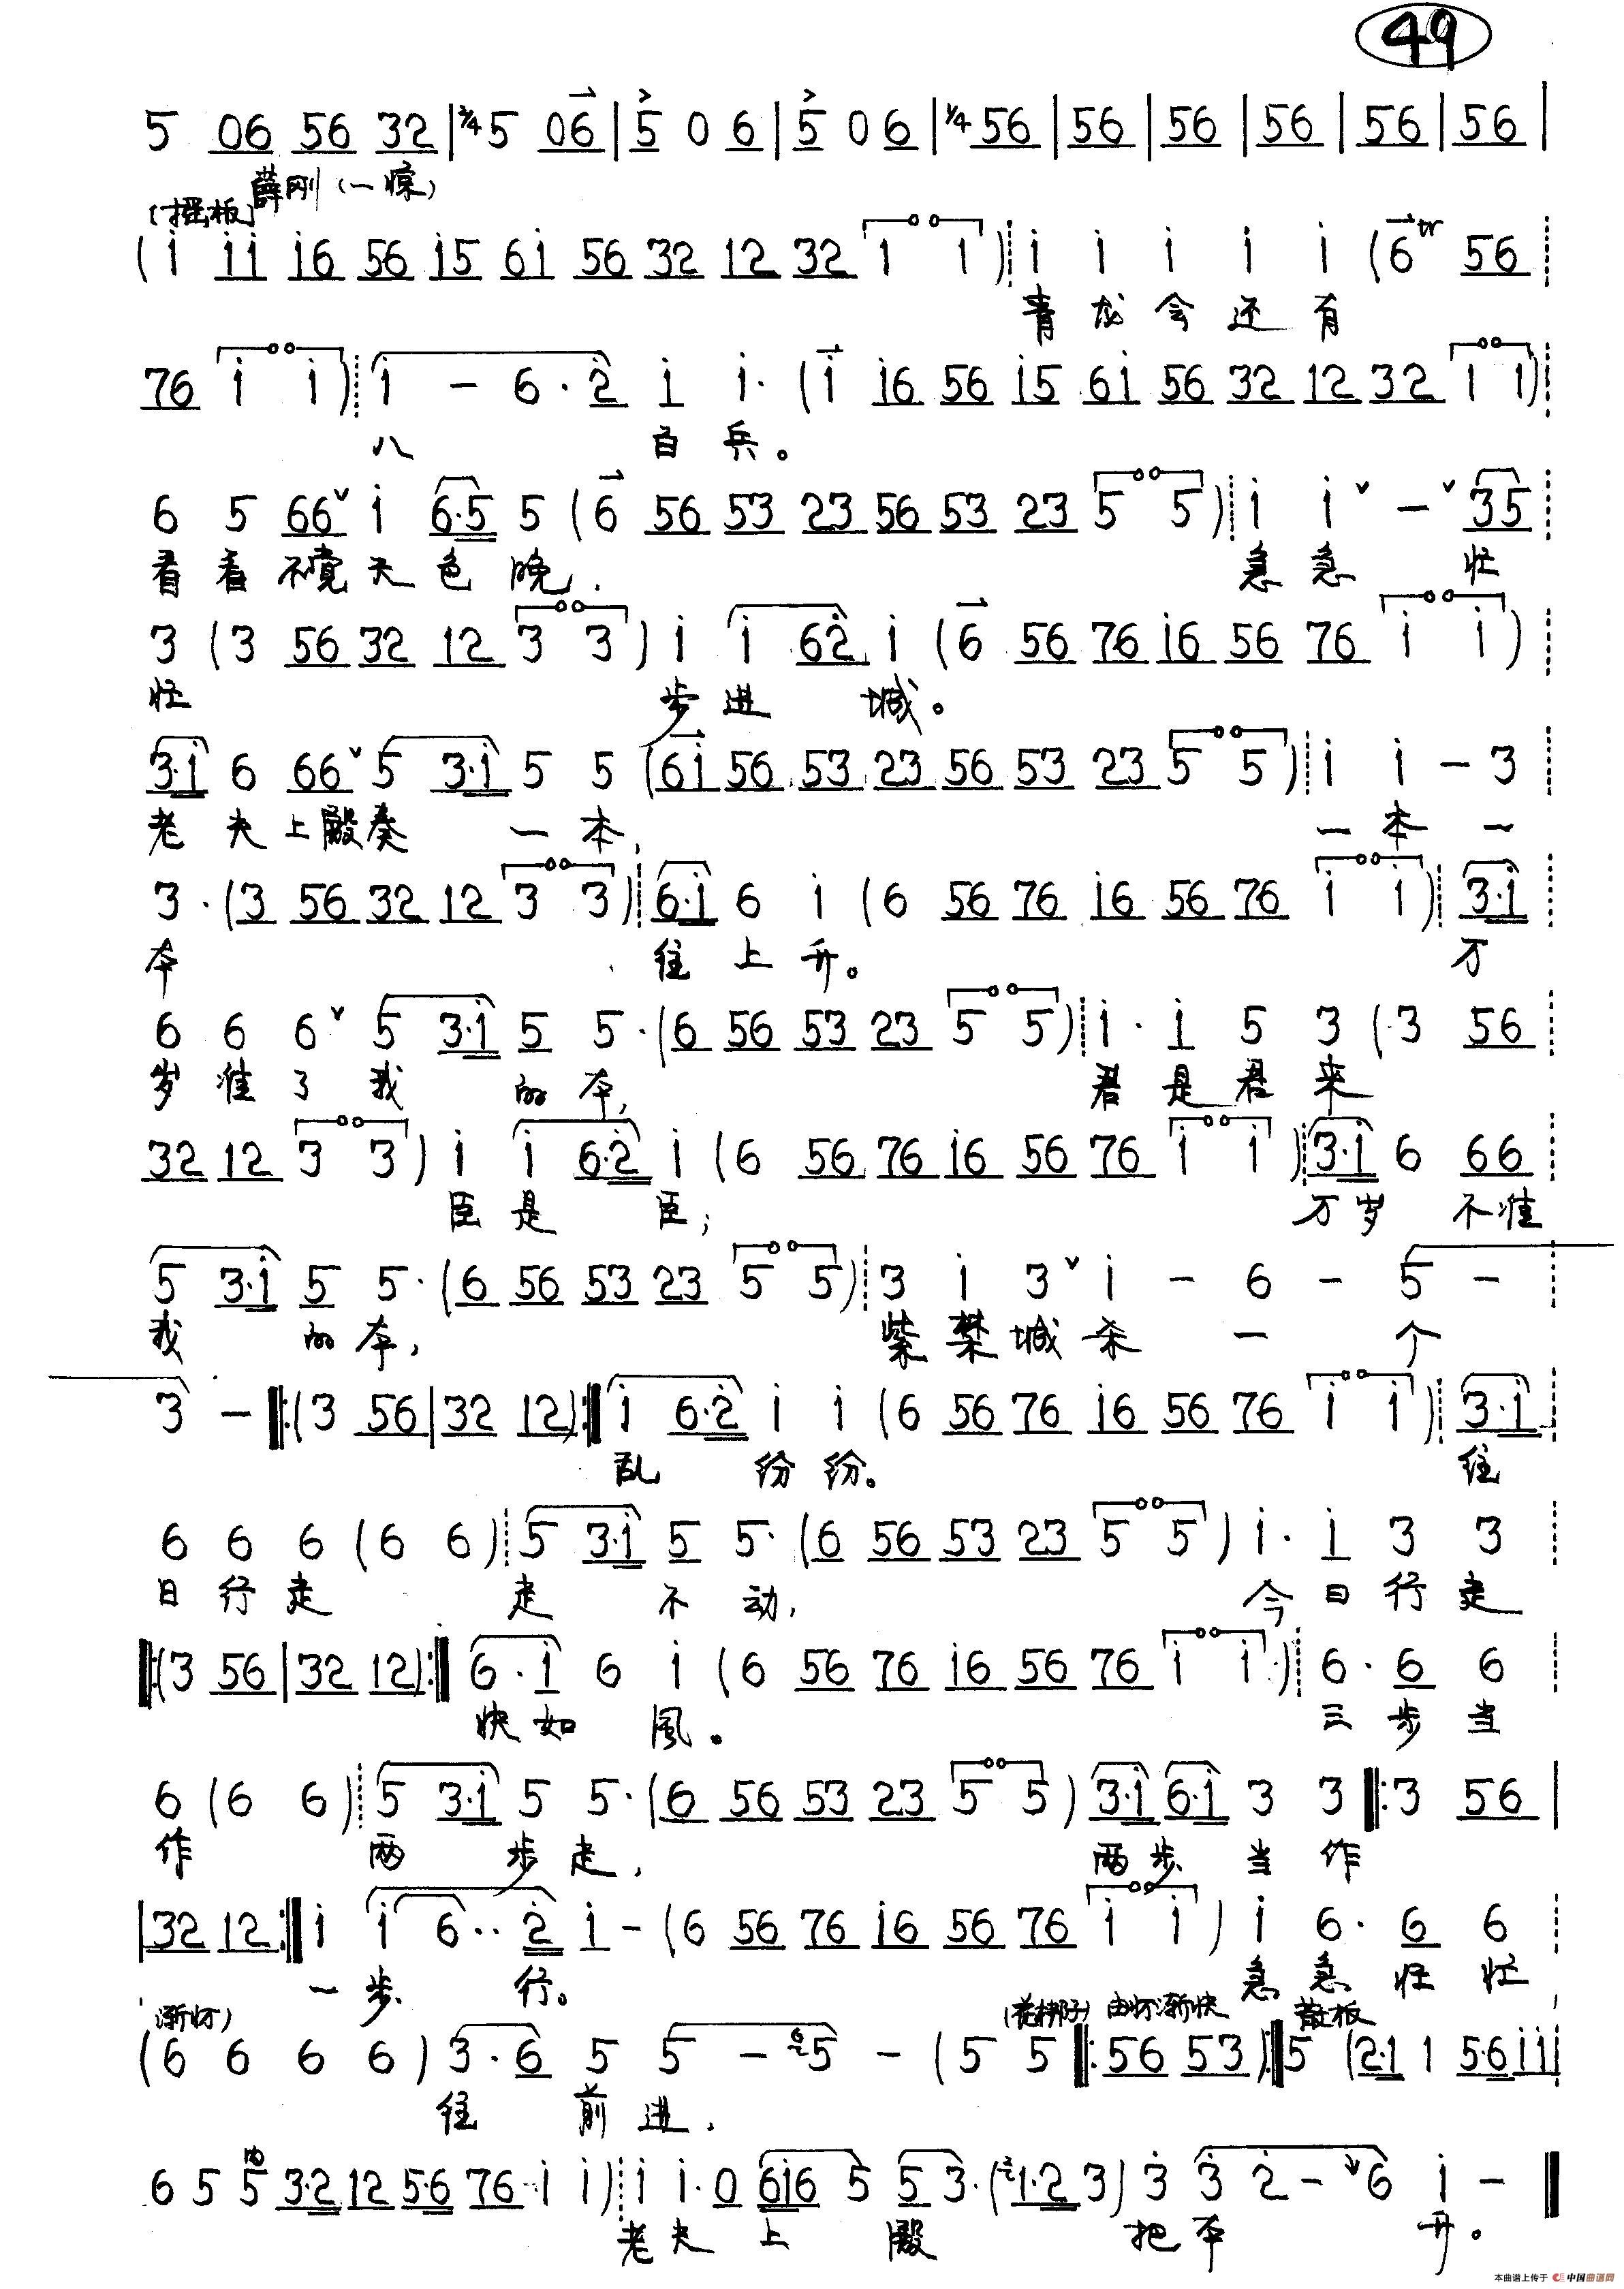 49
5 06 56 32 | 2/4 5 06 | 5 0 6 | 5 0 6 | 1/4 56 | 56 | 56 | 56 | 56 | 56 |
[摇板] 薛刚（一惊）
( i ii i6 56 i5 6i 56 32 12 32 1 1 ) i i i i i ( 6 tr 56
青龙会还有
76 i i ) i - 6 · 2 i i · ( i i6 56 i5 6i 56 32 12 32 1 1 )
八百兵。
6 5 66 i 6·5 5 ( 6 56 53 23 56 53 23 5 5 ) i i - 35
看看不觉天色晚， 急急忙
3 ( 3 56 32 12 3 3 ) i i 62 i ( 6 56 76 i6 56 76 i i )
忙 步进城。
3·i 6 66 5 3·i 5 5 ( 6i 56 53 23 56 53 23 5 5 ) i i - 3
老夫上殿奏一本， 一本一
3 · ( 3 56 32 12 3 3 ) 6·i 6 i ( 6 56 76 i6 56 76 i i ) 3·i
本 往上升。 万
6 6 6 5 3·i 5 5 · ( 6 56 53 23 5 5 ) i · i 5 3 ( 3 56
岁准了我的本， 君是君来
32 12 3 3 ) i i 6·2 i ( 6 56 76 i6 56 76 i i ) 3·i 6 66
臣是臣； 万岁不准
5 3·i 5 5 · ( 6 56 53 23 5 5 ) 3 i 3 i - 6 - 5 -
我的本， 紫禁城杀一个
3 - ‖: ( 3 56 | 32 12 ) :‖ i 6·2 i i ( 6 56 76 i6 56 76 i i ) 3·i
乱纷纷。 往
6 6 6 ( 6 6 ) 5 3·i 5 5 · ( 6 56 53 23 5 5 ) i · i 3 3
日行走 走不动， 今日行走
‖: ( 3 56 | 32 12 ) :‖ 6 · i 6 i ( 6 56 76 i6 56 76 i i ) 6 · 6 6
快如風。 三步当
6 ( 6 6 ) 5 3·i 5 5 · ( 6 56 53 23 5 5 ) 3·i 6·i 3 3 ‖: 3 56 |
作 两步走， 两步当作
| 32 12 :‖ i i 6 ·· 2 i - ( 6 56 76 i6 56 76 i i ) i 6 · 6 6
一步行。 急急忙忙
（渐怀） （花梆子）由怀渐快 散板
( 6 6 6 6 ) 3 · 6 5 5 - 5 - ( 5 5 ‖: 56 53 ) :‖ 5 ( 2·1 1 5·6 ii
往前进，
6 5 5 3·2 12 5·6 76 i i ) i i · 0 6i6 5 5 3 · ( 1·2 3 ) 3 3 2 - 6 i - ‖
老夫上殿把本升。
本曲谱上传于 中国曲谱网